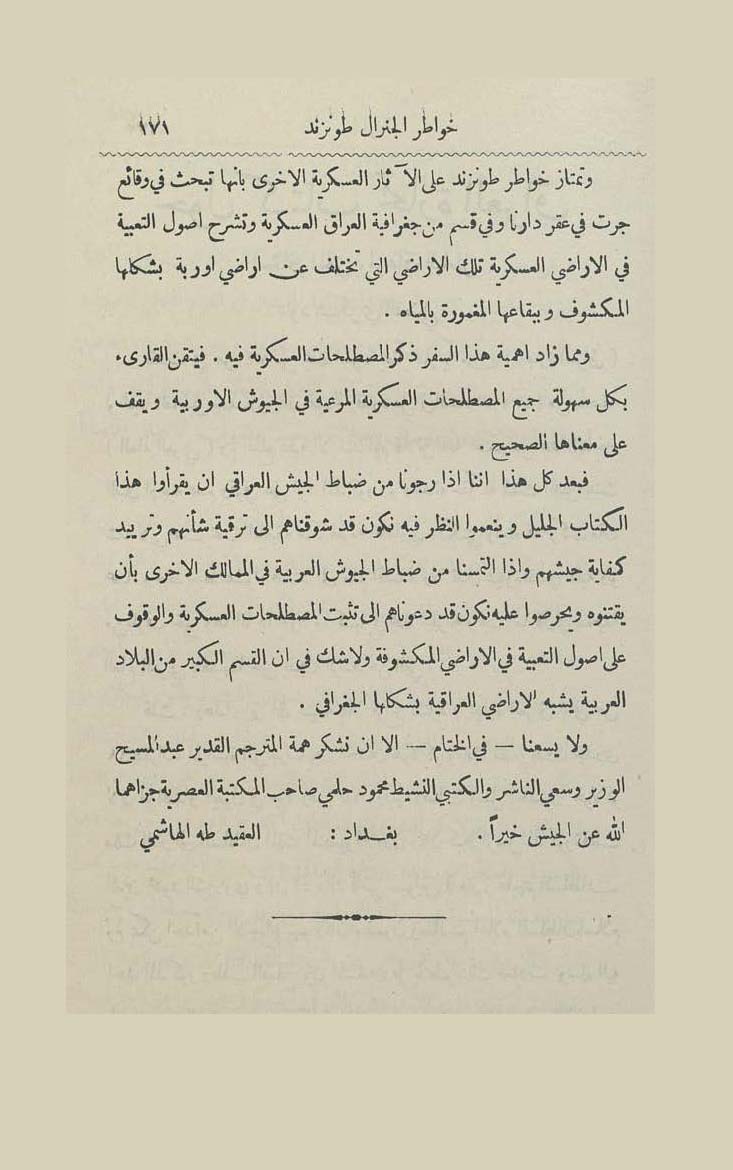 خواطر الجنرال طونزند ١٧١
وتمتاز خواطر طونزند على الآثار العسكرية الاخرى بانها تبحث في وقائع
جرت في عقر دارنا وفي قسم من جغرافية العراق العسكرية وتشرح اصول التعبية
في الاراضي العسكرية تلك الاراضي التي تختلف عن اراضي اوربة بشكلها
المكشوف وببقاعها المغمورة بالمياه .
ومما زاد اهمية هذا السفر ذكر المصطلحات العسكرية فيه . فيتقن القارىء
بكل سهولة جميع المصطلحات العسكرية المرعية في الجيوش الاوربية ويقف
على معناها الصحيح .
فبعد كل هذا اننا اذا رجونا من ضباط الجيش العراقي ان يقرأوا هذا
الكتاب الجليل وينعموا النظر فيه نكون قد شوقناهم الى ترقية شأنهم وتزييد
كفاية جيشهم واذا التمسنا من ضباط الجيوش العربية في الممالك الاخرى بأن
يقتنوه ويحرصوا عليه نكون قد دعوناهم الى تثبت المصطلحات العسكرية والوقوف
على اصول التعبية في الاراضي المكشوفة ولا شك في ان القسم الكبير من البلاد
العربية يشبه الاراضي العراقية بشكلها الجغرافي .
ولا يسعنا — في الختام — الا ان نشكر همة المترجم القدير عبد المسيح
الوزير وسعي الناشر والكتبي النشيط محمود حلمي صاحب المكتبة العصرية جزاهما
الله عن الجيش خيراً . بغداد : العقيد طه الهاشمي